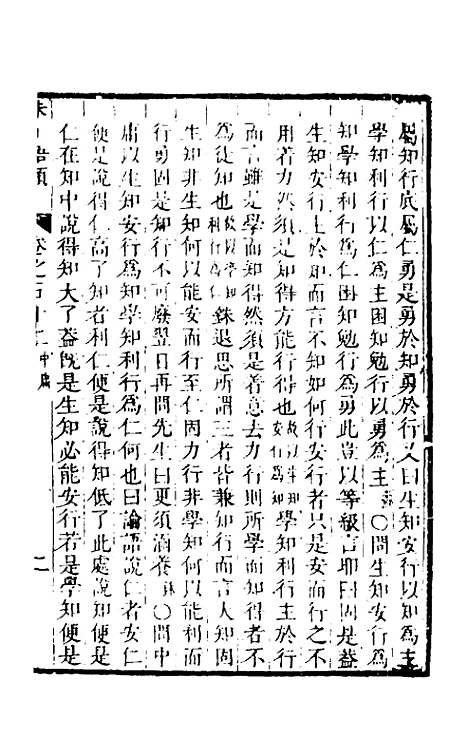 屬知行底屬仁勇是勇於知勇於行又曰生知安行以知爲主
學知利行以仁爲主困知勉行以勇爲主〇問生知安行爲
知學知利行爲仁困知勉行爲勇此豈以等級言耶曰固是蓋
生知安行主於知而言不知如何行安行者只是安而行之不
用着力然須是知得方能行得也故以生知安行爲知學知利行主於行
而言雖是學而知得然須是着意去力行則所學而知得者不
爲徒知也故以學知利行爲仁銖退思所謂三者皆兼知行而言大知固
生知非生知何以能安而行至仁因力行非學知何以能利而
行勇固是知行不可廢翌日再問先生曰更須涵養銖〇問中
庸以生知安行爲知學知利行爲仁何也曰論語說仁者安仁
便是說得仁高了知者利仁便是說得知低了此處說知便是
仁在知中說得知大了蓋旣是生知必能安行若是學知便是
語類 卷之六十 中庸 二